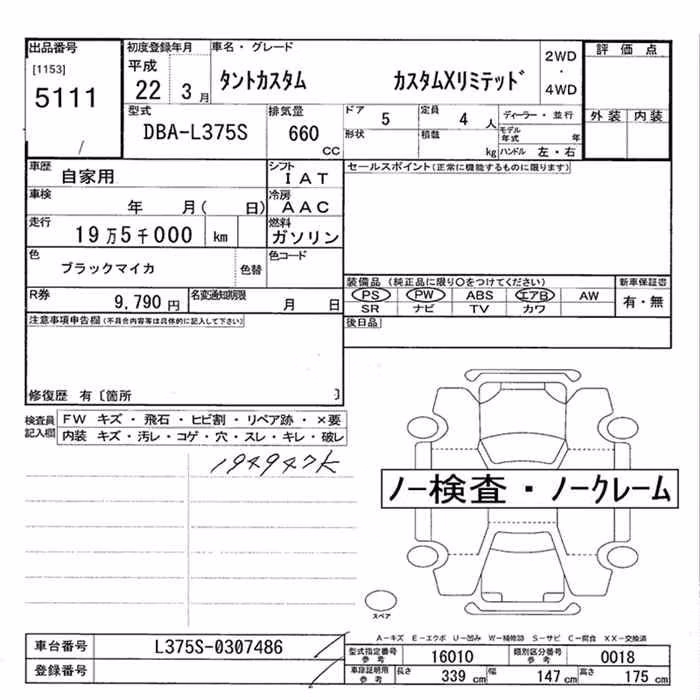 出品番号
[1153]
5111
初度登録年月
平成
22 3月
車名・グレード
タントカスタム カスタムXリミテッド
2WD
・
4WD
評価点
外装 内装
型式
DBA-L375S
排気量
660
CC
ドア 5
定員 4 人
ディーラー・並行
形状
積載 kg
モデル年式 年
ハンドル 左・右
車歴 自家用
シフト IAT
セールスポイント(正常に機能するものに限ります)
車検 年 月( 日)
冷房 AAC
走行 19万5千000 km
燃料 ガソリン
色 ブラックマイカ 色替
色コード
装備品(純正品に限り○をつけてください)
新車保証書
PS PW ABS エアB AW
有・無
SR ナビ TV カワ
R券 9,790円
名変通知期限 月 日
後日品
注意事項申告欄(不具合内容等は具体的に記入して下さい)
修復歴 有〔箇所 〕
検査員記入欄
FW キズ・飛石・ヒビ割・リペア跡・×要
内装 キズ・汚レ・コゲ・穴・スレ・キレ・破レ
194947K
ノー検査・ノークレーム
スペア
A-キズ E-エクボ U-凹み W-補修跡 S-サビ C-腐食 XX-交換済
車台番号 L375S-0307486
登録番号
型式指定番号参考 16010
類別区分番号参考 0018
車庫証明用参考 長さ 339 cm 幅 147 cm 高さ 175 cm